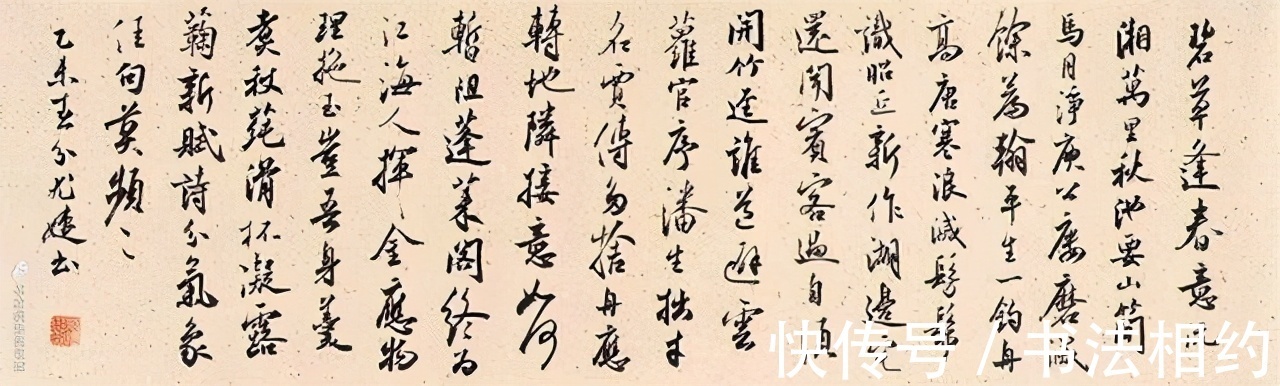 碧草逢春意沅
湘萬里秋池要山簡
馬月淨庾公樓磨滅
餘篇翰平生一釣舟
高唐寒浪減髣髴
識昭丘新作湖邊宅
還聞賓客過自須
開竹逕誰道避雲
蘿官序潘生拙才
名賈傅多捨舟應
轉地隣接意如何
暫阻蓬萊閣終為
江海人揮金應物
理拖玉豈吾身羹
煮秋蒓滑杯凝露
蘜新賦詩分氣象
佳句莫頻〻
乙未春分尤婕书
快传号 / 书法相约